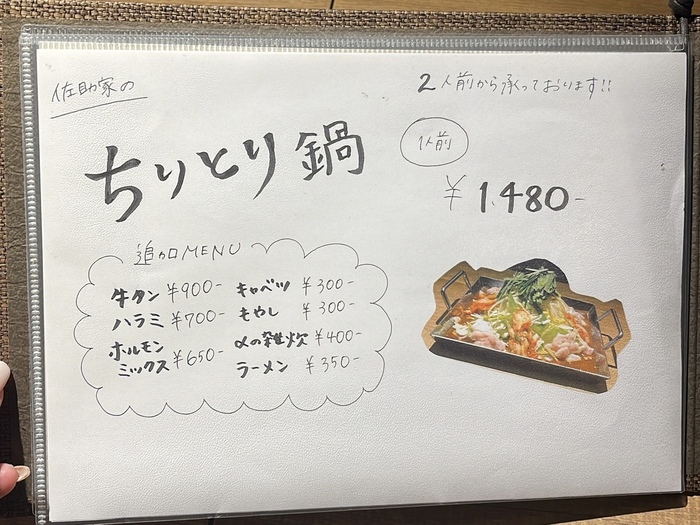 佐助家の
2人前から承っております!!
ちりとり鍋
1人前
¥1.480-
追加MENU
牛タン ¥900-
ハラミ ¥700-
ホルモン
ミックス ¥650-
キャベツ ¥300-
もやし ¥300-
〆の雑炊 ¥400-
ラーメン ¥350-